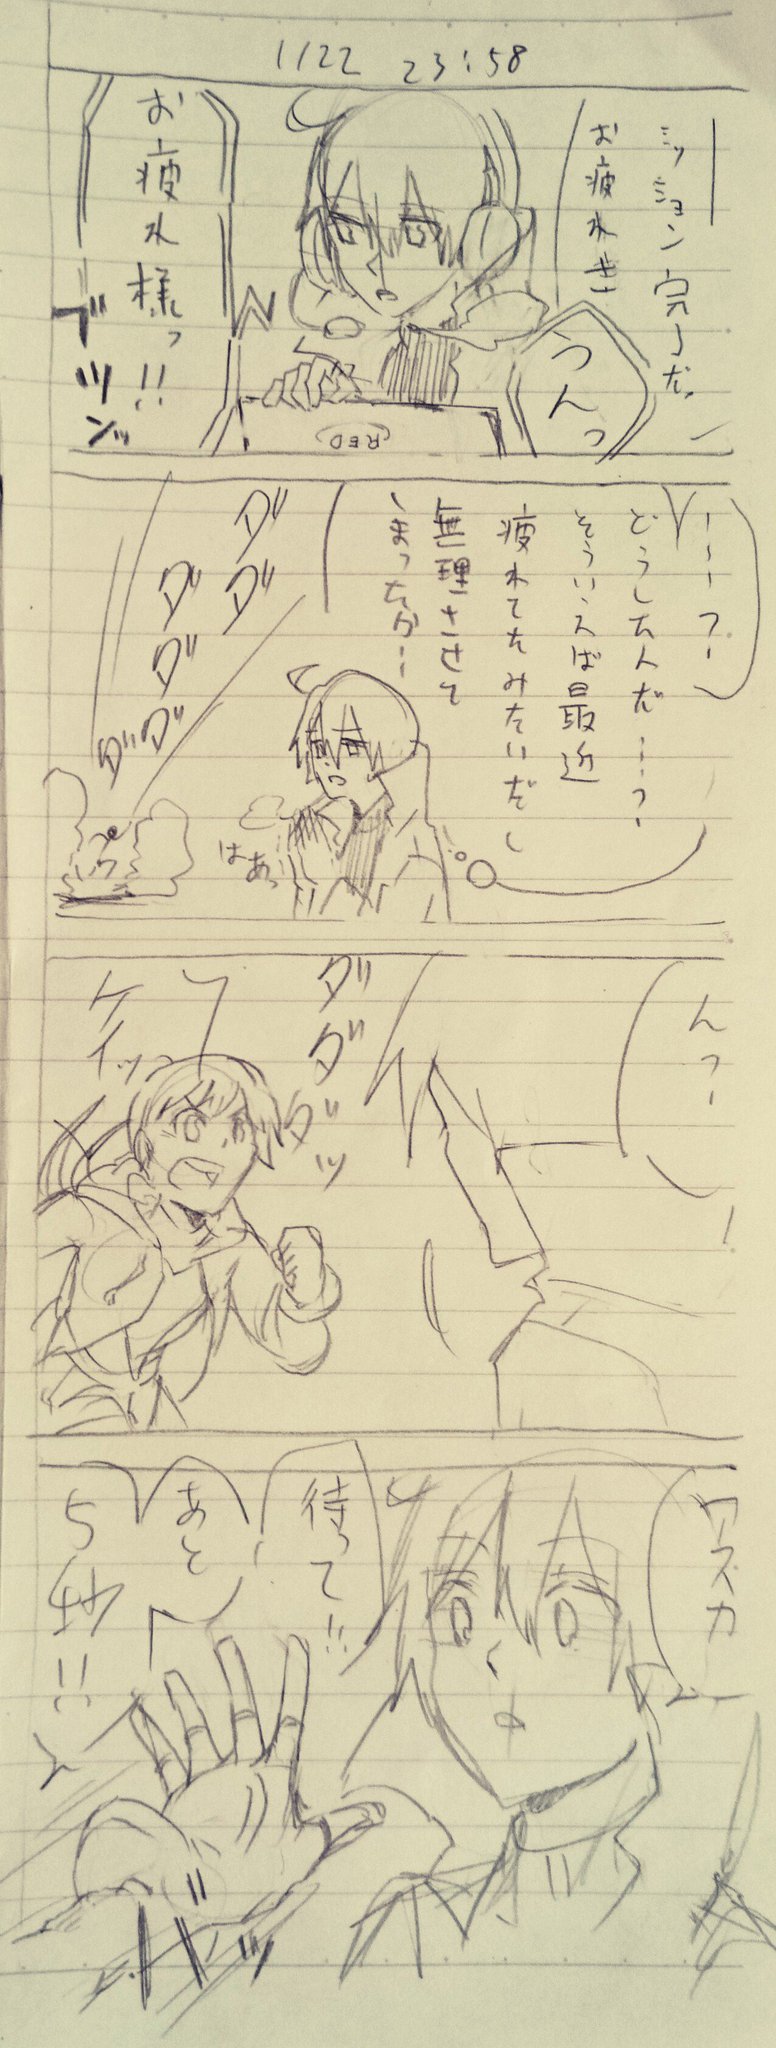 1122 23:58
ミッション完了だ。
お疲れさ
うんっ
RED
お疲れ様っ!!
ブツンッ
どうしたんだ……?
そういえば最近
疲れてたみたいだし
無理させて
しまったか…
はあっ
ダダ
ダダ
ダダ
んっ
ダダダッ
ケイッ
アスカ
待って!!
あと
5秒!!
バッ